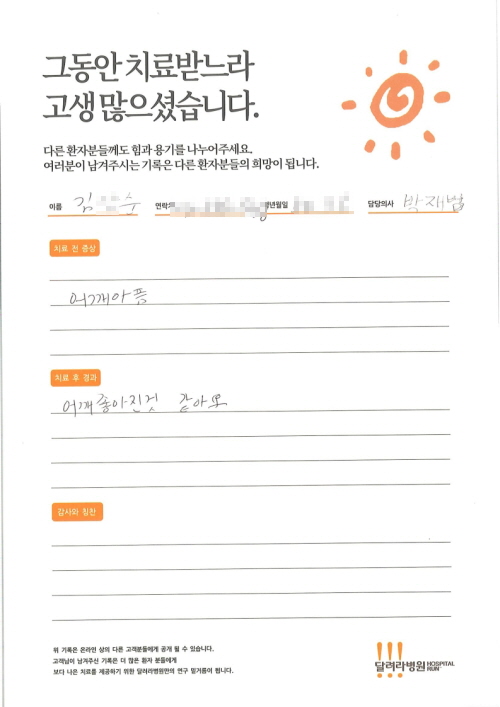 그동안 치료받느라
고생 많으셨습니다.
다른 환자분들께도 힘과 용기를 나누어주세요.
여러분이 남겨주시는 기록은 다른 환자분들의 희망이 됩니다.
이름 김 수 연락 년월일 담당의사 박재범
치료 전 증상
어깨아픔
치료 후 경과
어깨좋아진것 같아요
감사와 칭찬
위 기록은 온라인 상의 다른 고객분들에게 공개 될 수 있습니다.
고객님이 남겨주신 기록은 더 많은 환자 분들에게
보다 나은 치료를 제공하기 위한 달려라병원만의 연구 밑거름이 됩니다.
달려라병원 HOSPITAL RUN